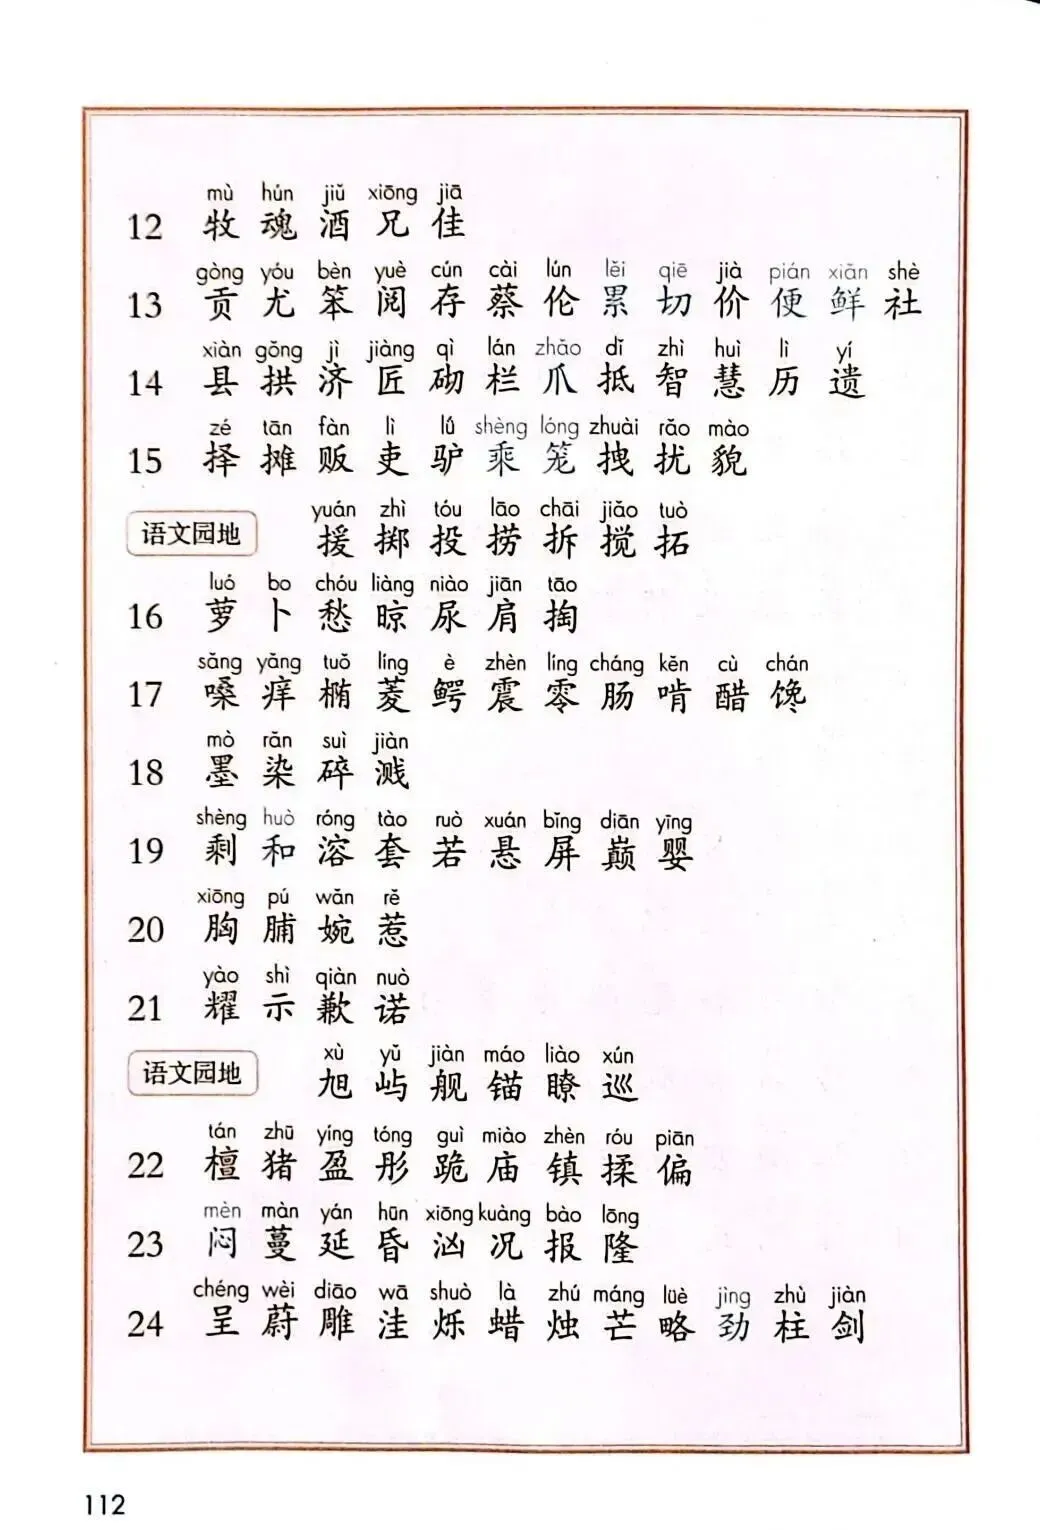 mù hún jiǔ xiōng jiā
12 牧 魂 酒 兄 佳
gòng yóu bèn yuè cún cài lún lěi qiē jià pián xiān shè
13 贡 尤 笨 阅 存 蔡 伦 累 切 价 便 鲜 社
xiàn gǒng jì jiàng qì lán zhǎo dǐ zhì huì lì yí
14 县 拱 济 匠 砌 栏 爪 抵 智 慧 历 遗
zé tān fàn lì lǘ shèng lóng zhuài rǎo mào
15 择 摊 贩 吏 驴 乘 笼 拽 扰 貌
yuán zhì tóu lāo chāi jiǎo tuò
语文园地 援 掷 投 捞 拆 搅 拓
luó bo chóu liàng niào jiān tāo
16 萝 卜 愁 晾 尿 肩 掏
sǎng yǎng tuǒ líng è zhèn líng cháng kěn cù chán
17 嗓 痒 椭 菱 鳄 震 零 肠 啃 醋 馋
mò rǎn suì jiàn
18 墨 染 碎 溅
shèng huò róng tào ruò xuán bǐng diān yīng
19 剩 和 溶 套 若 悬 屏 巅 婴
xiōng pú wǎn rě
20 胸 脯 婉 惹
yào shì qiàn nuò
21 耀 示 歉 诺
xù yǔ jiàn máo liào xún
语文园地 旭 屿 舰 锚 瞭 巡
tán zhū yíng tóng guì miào zhèn róu piān
22 檀 猪 盈 彤 跪 庙 镇 揉 偏
mèn màn yán hūn xiōng kuàng bào lōng
23 闷 蔓 延 昏 汹 况 报 隆
chéng wèi diāo wā shuò là zhú máng lüè jìng zhù jiàn
24 呈 蔚 雕 洼 烁 蜡 烛 芒 略 劲 柱 剑
112